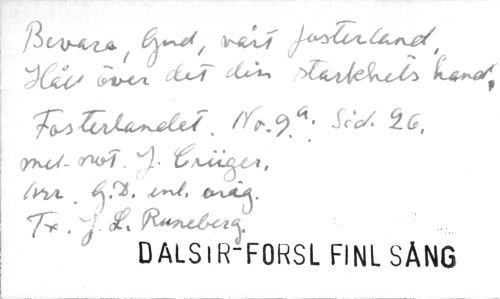 Bevara, Gud, vårt fosterland,
Håll över det din starkhets hand,
Fosterlandet. No. 9a. Sid. 26.
mel. not. J. Crüger.
Arr. G.D. enl. orig.
Tx. J. L. Runeberg.
DALSTR-FORSL FINL SÅNG